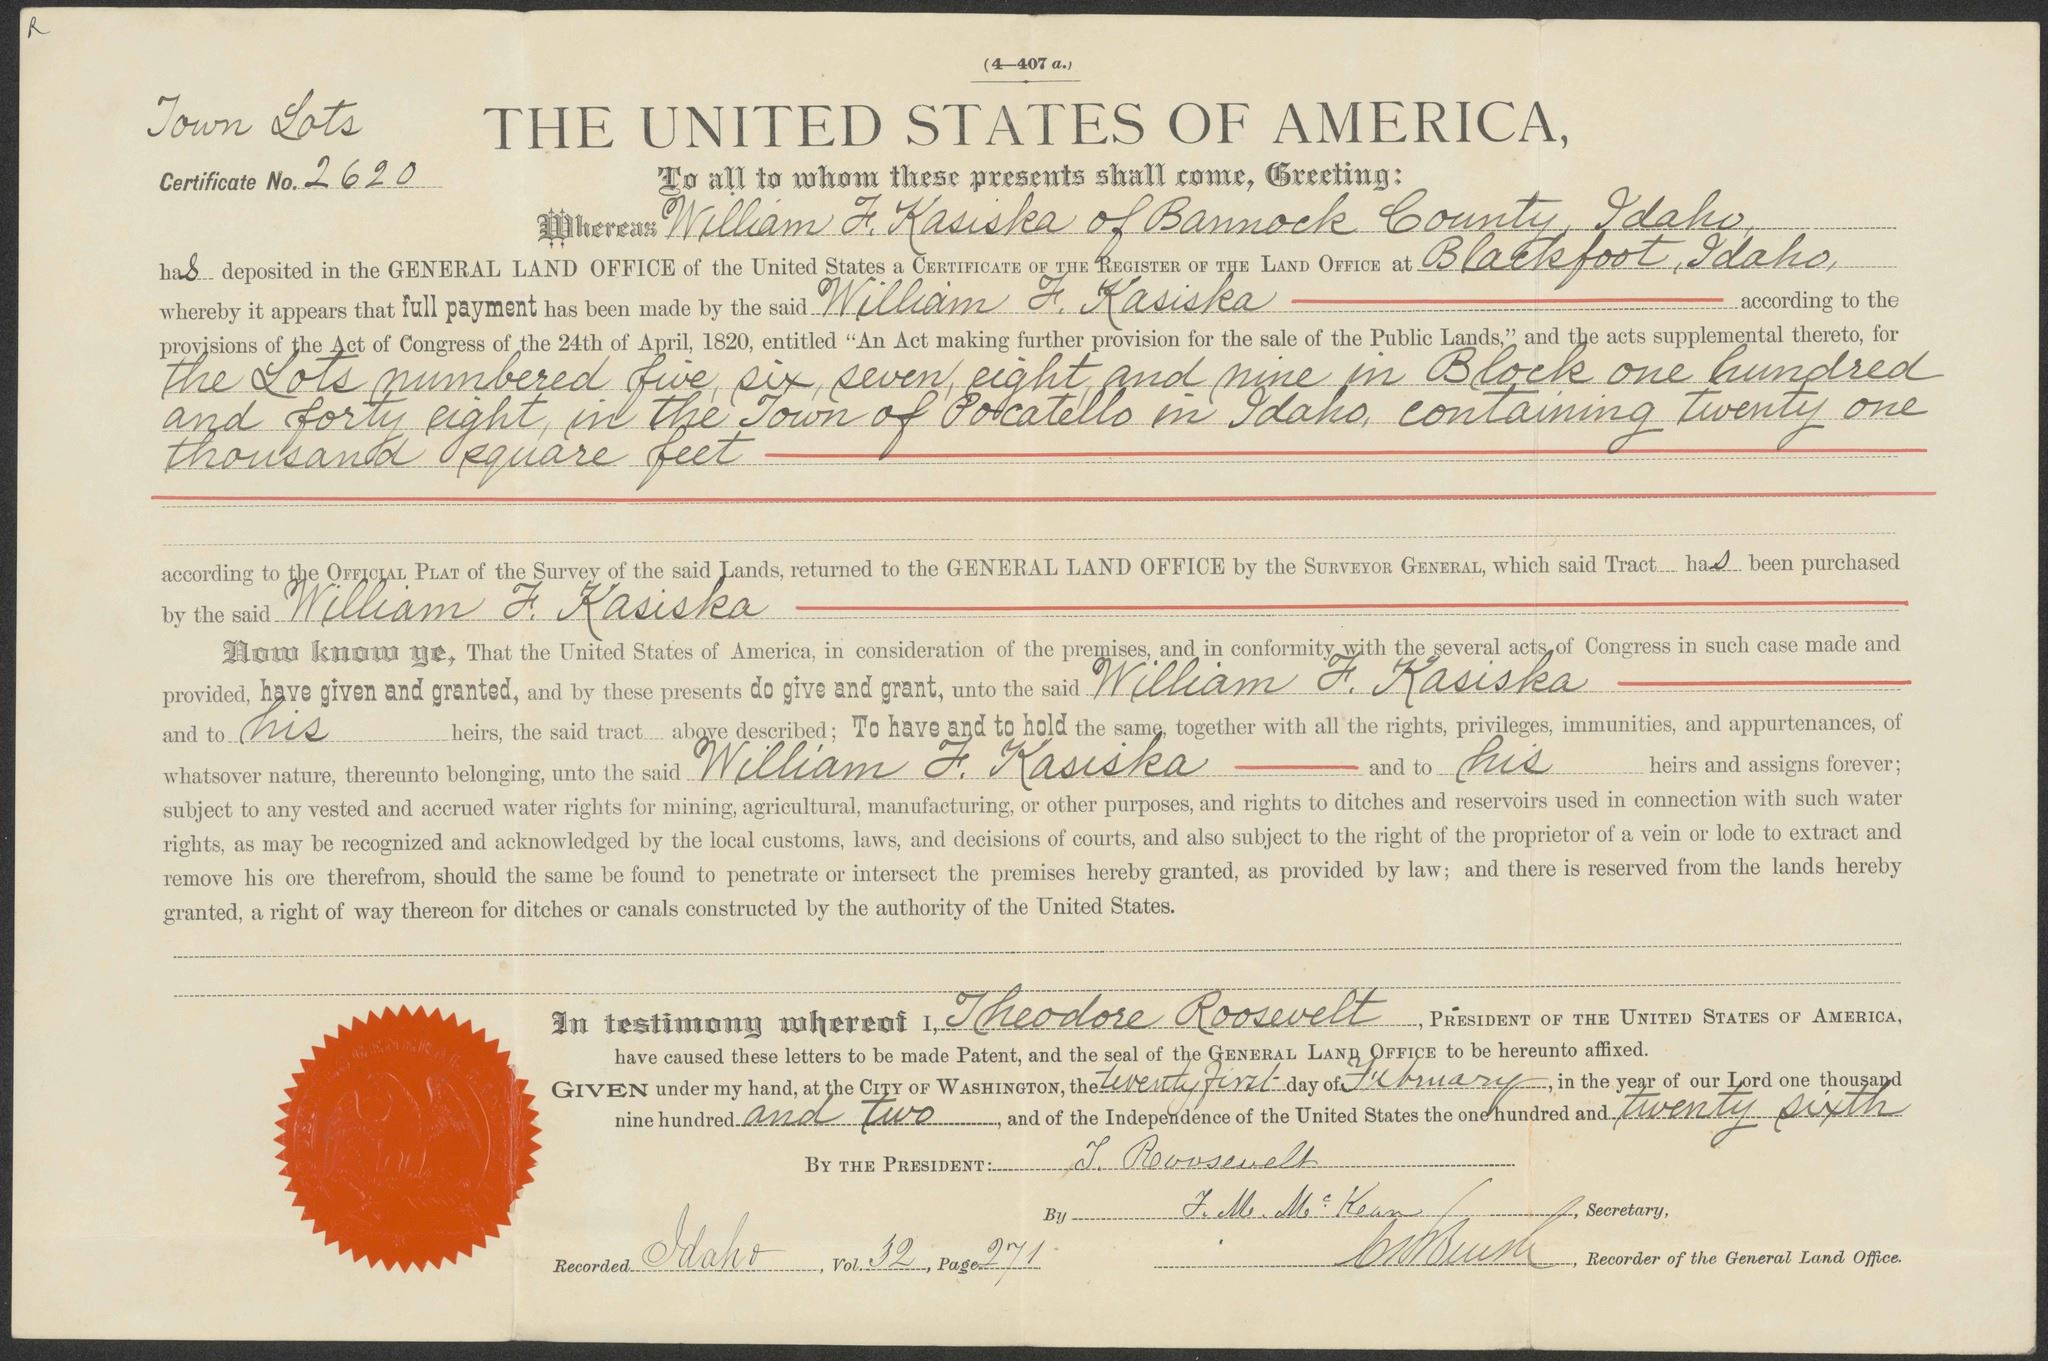 R
(4—407 a.)
Town Lots
THE UNITED STATES OF AMERICA,
Certificate No. 2620
To all to whom these presents shall come, Greeting:
Whereas William F. Kasiska of Bannock County, Idaho,
has deposited in the GENERAL LAND OFFICE of the United States a CERTIFICATE OF THE REGISTER OF THE LAND OFFICE at Blackfoot, Idaho,
whereby it appears that full payment has been made by the said William F. Kasiska according to the
provisions of the Act of Congress of the 24th of April, 1820, entitled “An Act making further provision for the sale of the Public Lands,” and the acts supplemental thereto, for
the Lots numbered five, six, seven, eight, and nine in Block one hundred
and forty eight, in the Town of Pocatello in Idaho, containing twenty one
thousand square feet
according to the OFFICIAL PLAT of the Survey of the said Lands, returned to the GENERAL LAND OFFICE by the SURVEYOR GENERAL, which said Tract has been purchased
by the said William F. Kasiska
Now know ye, That the United States of America, in consideration of the premises, and in conformity with the several acts of Congress in such case made and
provided, have given and granted, and by these presents do give and grant, unto the said William F. Kasiska
and to his heirs, the said tract above described; To have and to hold the same, together with all the rights, privileges, immunities, and appurtenances, of
whatsover nature, thereunto belonging, unto the said William F. Kasiska and to his heirs and assigns forever;
subject to any vested and accrued water rights for mining, agricultural, manufacturing, or other purposes, and rights to ditches and reservoirs used in connection with such water
rights, as may be recognized and acknowledged by the local customs, laws, and decisions of courts, and also subject to the right of the proprietor of a vein or lode to extract and
remove his ore therefrom, should the same be found to penetrate or intersect the premises hereby granted, as provided by law; and there is reserved from the lands hereby
granted, a right of way thereon for ditches or canals constructed by the authority of the United States.
In testimony whereof I, Theodore Roosevelt, PRESIDENT OF THE UNITED STATES OF AMERICA,
have caused these letters to be made Patent, and the seal of the GENERAL LAND OFFICE to be hereunto affixed.
GIVEN under my hand, at the CITY OF WASHINGTON, the twenty first day of February, in the year of our Lord one thousand
nine hundred and two, and of the Independence of the United States the one hundred and twenty sixth
BY THE PRESIDENT: T. Roosevelt
By F. M. McKean, Secretary,
Recorded Idaho, Vol. 32, Page 271
, Recorder of the General Land Office.